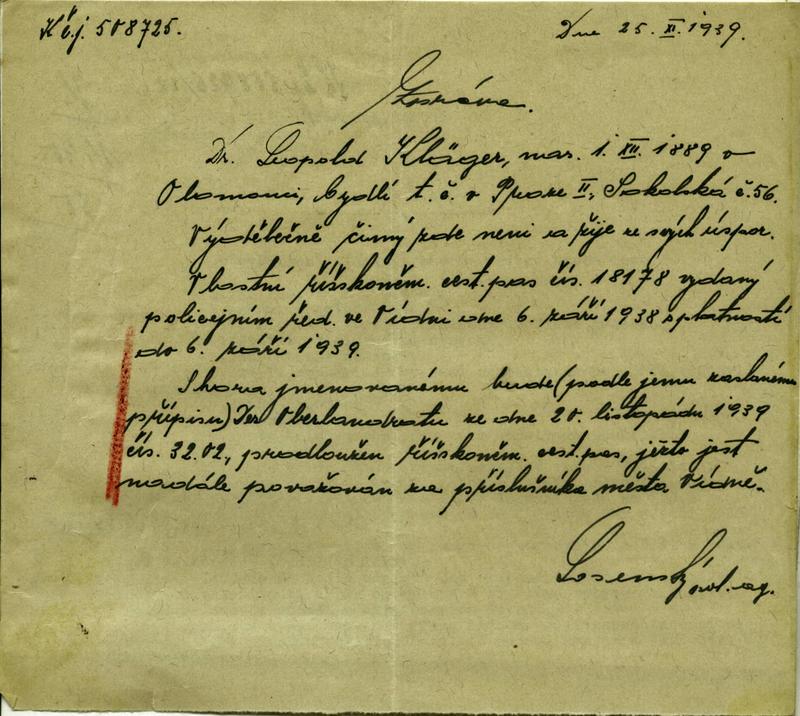 K č.j. 508725.
Dne 25. XI. 1939.
Zpráva.
Dr. Leopold Kläger, nar. 1. XII. 1889 v
Olomouci, bydlí t. č. v Praze II, Sokolská č. 56.
Výdělečně činný zde není a žije ze svých úspor.
Vlastní říšskoněm. cest. pas čís. 18178 vydaný
policejním řed. ve Vídni dne 6. září 1938 s platností
do 6. září 1939.
Shora jmenovanému bude (podle jemu zaslanému
přípisu) Der Oberlandratu ze dne 20. listopádu 1939
čís. 32.02, prodloužen říšskoněm. cest. pas, ježto jest
nadále považován za příslušníka města Vídně.
Losenský pol. ag.